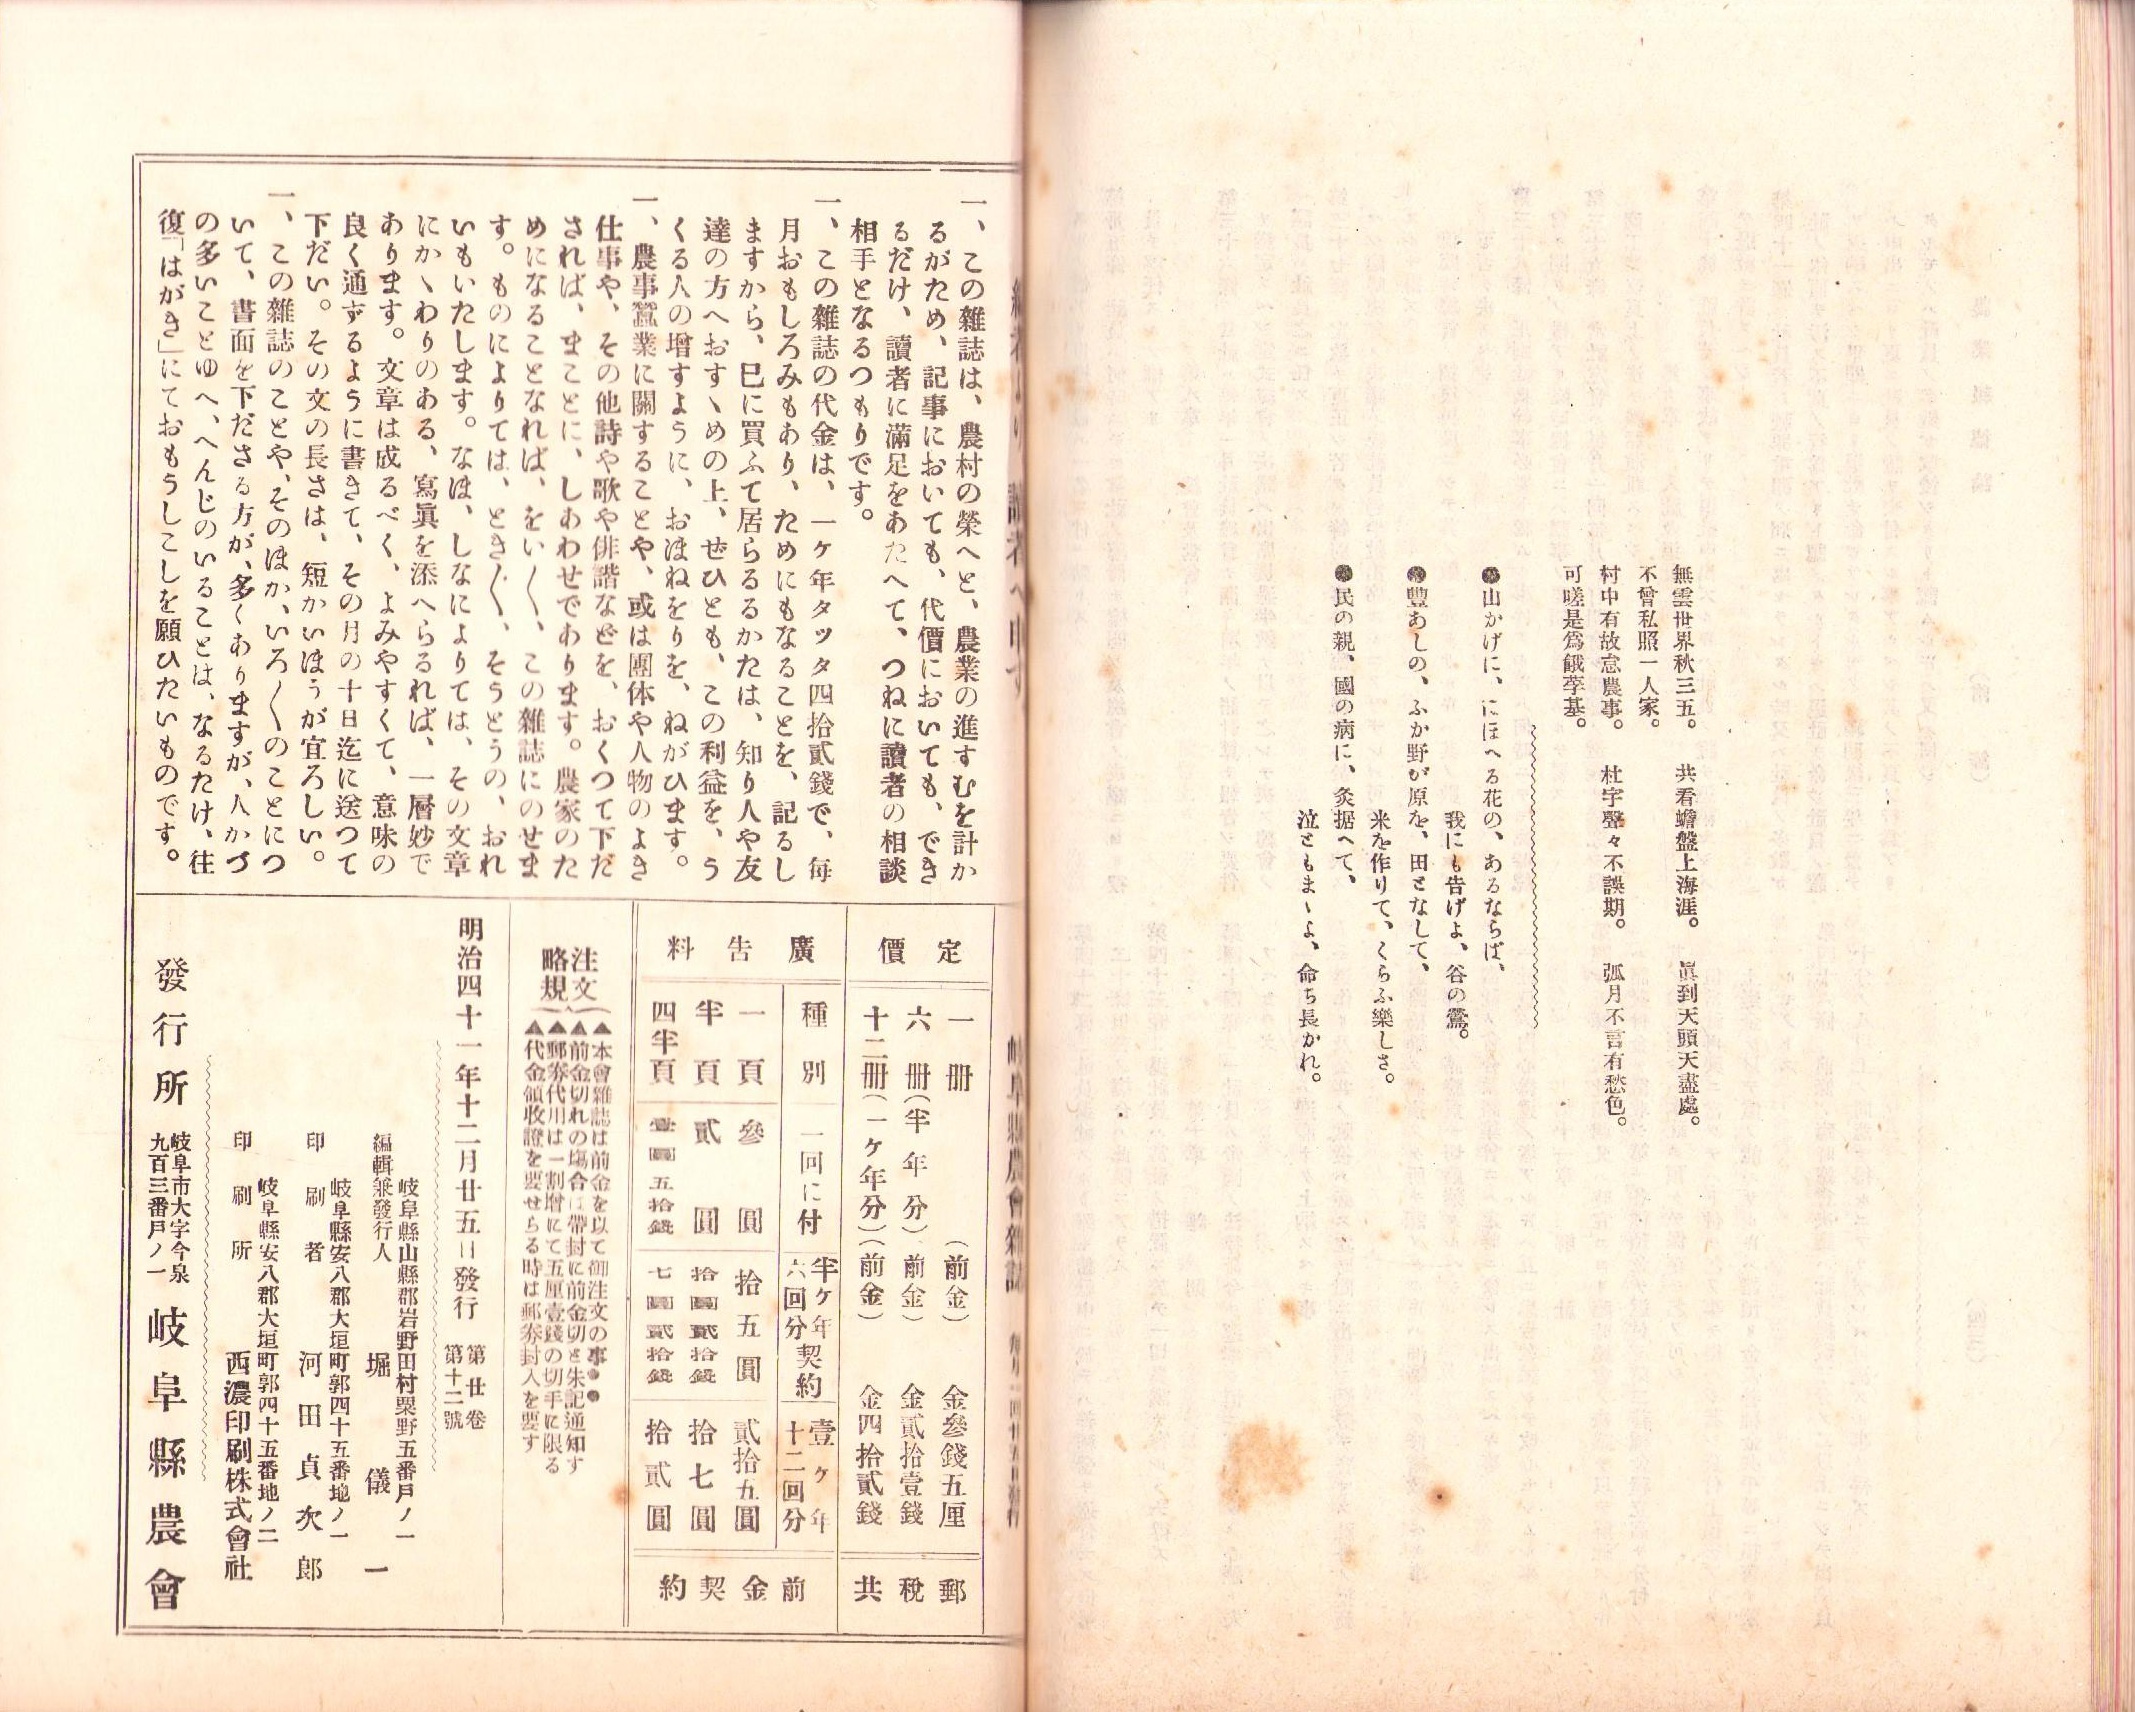 無雲世界秋三五。　共看蟾盤上海涯。　眞到天頭天盡處。
不曾私照一人家。
村中有故怠農事。　杜宇聲々不誤期。　弧月不言有愁色。
可嗟是爲餓莩基。
●山かげに、にほへる花の、あるならば、
我にも告げよ、谷の鶯。
●豐あしの、ふか野が原を、田となして、
米を作りて、くらふ樂しさ。
●民の親、國の病に、灸据へて、
泣ともまゝよ、命ち長かれ。
讀者へ申す
一、この雜誌は、農村の榮へと、農業の進すむを計か
るがため、記事においても、代價においても、でき
るだけ、讀者に滿足をあたへて、つねに讀者の相談
相手となるつもりです。
一、この雜誌の代金は、一ヶ年タッタ四拾貳錢で、毎
月おもしろみもあり、ためにもなることを、記るし
ますから、巳に買ふて居らるるかたは、知り人や友
達の方へおすゝめの上、ぜひとも、この利益を、う
くる人の增すように、おほねをりを、ねがひます。
一、農事蠶業に關することや、或は團体や人物のよき
仕事や、その他詩や歌や俳諧などを、おくつて下だ
されば、まことに、しあわせであります。農家のた
めになることなれば、をい〱、この雜誌にのせま
す。ものによりては、とき〲、そうとうの、おれ
いもいたします。なほ、しなによりては、その文章
にかゝわりのある、寫眞を添へらるれば、一層妙で
あります。文章は成るべく、よみやすくて、意味の
良く通ずるように書きて、その月の十日迄に送つて
下だい。その文の長さは、短かいほうが宜ろしい。
一、この雜誌のことや、そのほか、いろ〱のことにつ
いて、書面を下ださる方が、多くありますが、人かづ
の多いことゆへ、へんじのいることは、なるたけ、往
復「はがき」にておもうしこしを願ひたいものです。
岐阜縣農會雜誌　毎月一回廿五日發行
定價
一冊（前金）金參錢五厘
六冊（半年分）（前金）金貳拾壹錢
十二冊（一ヶ年分）（前金）金四拾貳錢
郵稅共
廣告料
種別　一回に付　半ヶ年六回分契約　壹ヶ年十二回分
一頁　參圓　拾五圓　貳拾五圓
半頁　貳圓　拾圓貳拾錢　拾七圓
四半頁　壹圓五拾錢　七圓貳拾錢　拾貳圓
前金契約
注文略規
▲本會雜誌は前金を以て御注文の事●●
▲前金切れの塲合は帶封に前金切と朱記通知す
▲郵券代用は一割增にて五厘壹錢の切手に限る
▲代金領收證を要せらる時は郵券封入を要す
明治四十一年十二月廿五日發行　第廿卷第十二號
岐阜縣山縣郡岩野田村粟野五番戶ノ一
編輯兼發行人　堀儀一
岐阜縣安八郡大垣町郭四十五番地ノ一
印刷者　河田貞次郎
岐阜縣安八郡大垣町郭四十五番地ノ二
印刷所　西濃印刷株式會社
岐阜市大字今泉九百三番戶ノ一
發行所　岐阜縣農會